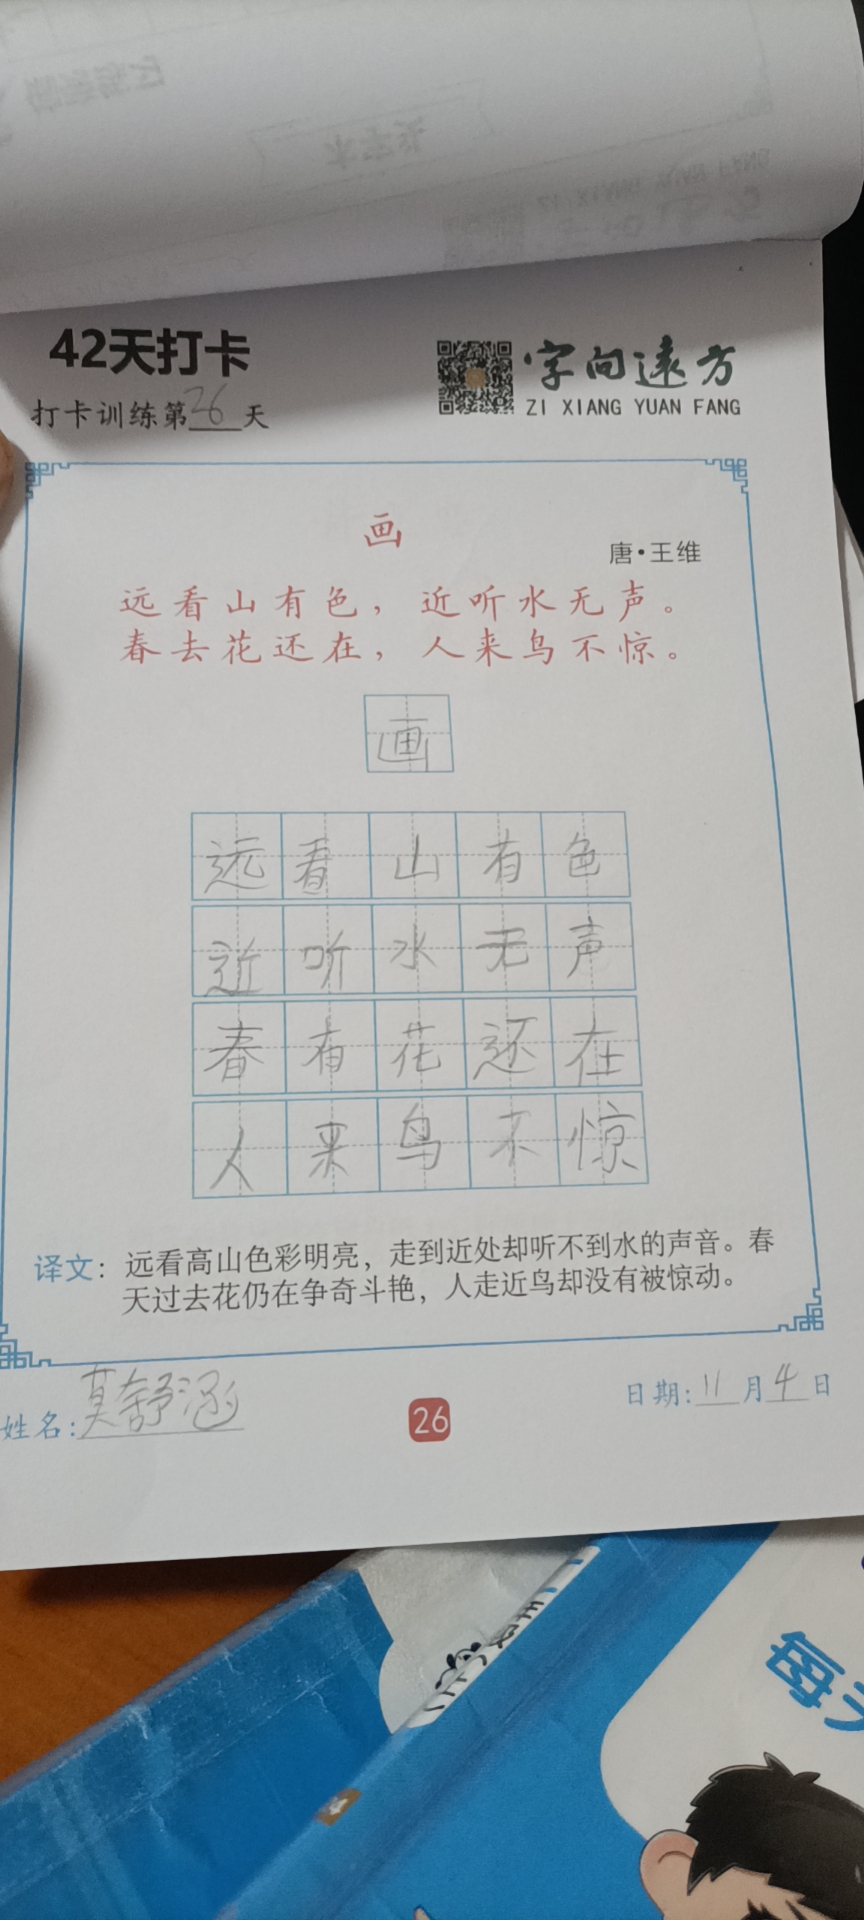 42天打卡
打卡训练第26天
字向远方
ZI XIANG YUAN FANG
画
唐·王维
远看山有色，近听水无声。
春去花还在，人来鸟不惊。
画
远看山有色
近听水无声
春有花还在
人来鸟不惊
译文：远看高山色彩明亮，走到近处却听不到水的声音。春
天过去花仍在争奇斗艳，人走近鸟却没有被惊动。
姓名:莫舒涵
26
日期:11月4日
每天